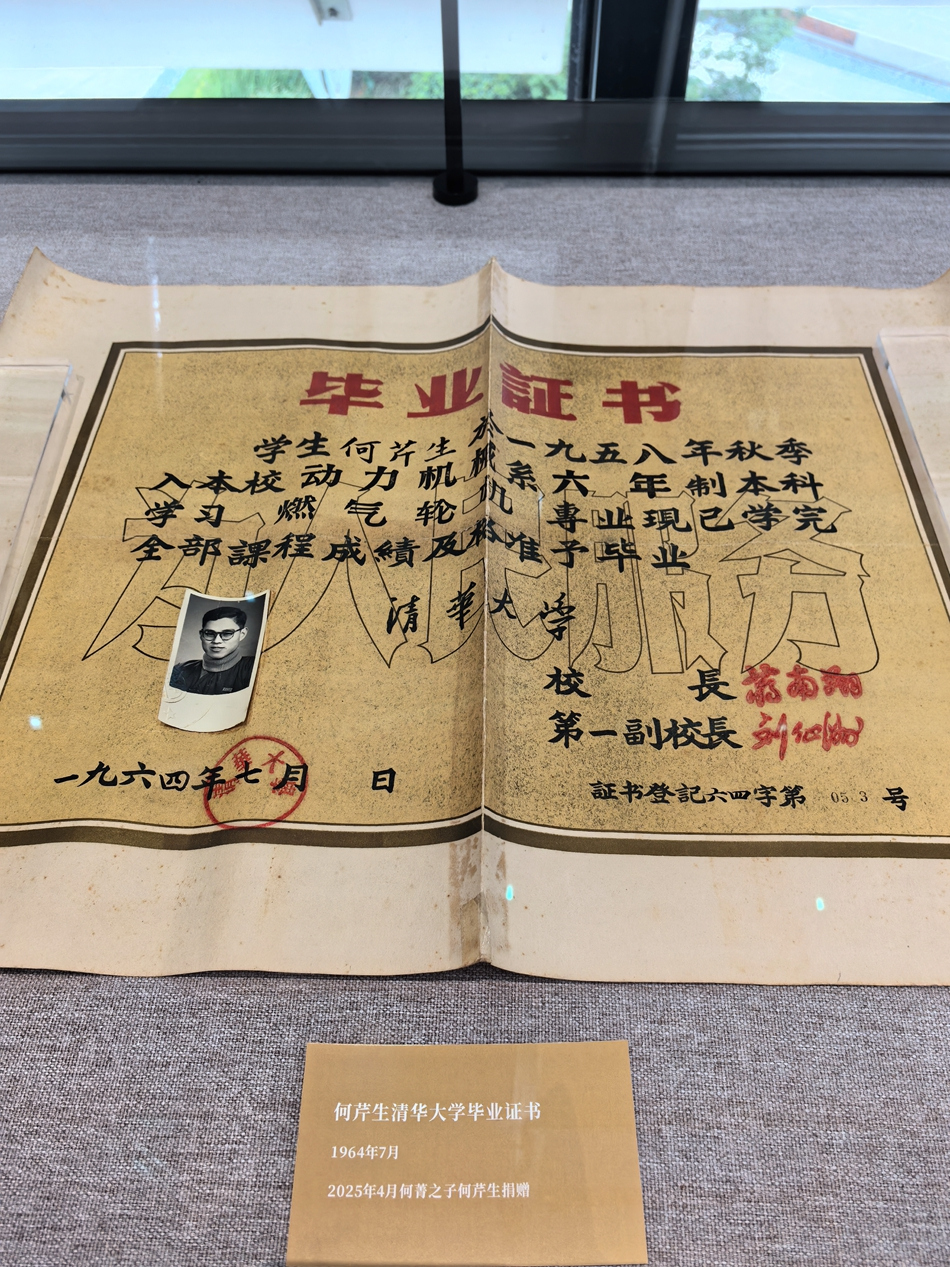 毕业証书
学生何芹生於一九五八年秋季
入本校动力机械系六年制本科
学习燃气轮机專业現已学完
全部課程成績及格准予毕业
为人民服务
清華大学
校長 蒋南翔
第一副校長 刘仙洲
一九六四年七月 日
証书登記六四字第 号
何芹生清华大学毕业证书
1964年7月
2025年4月何菁之子何芹生捐赠